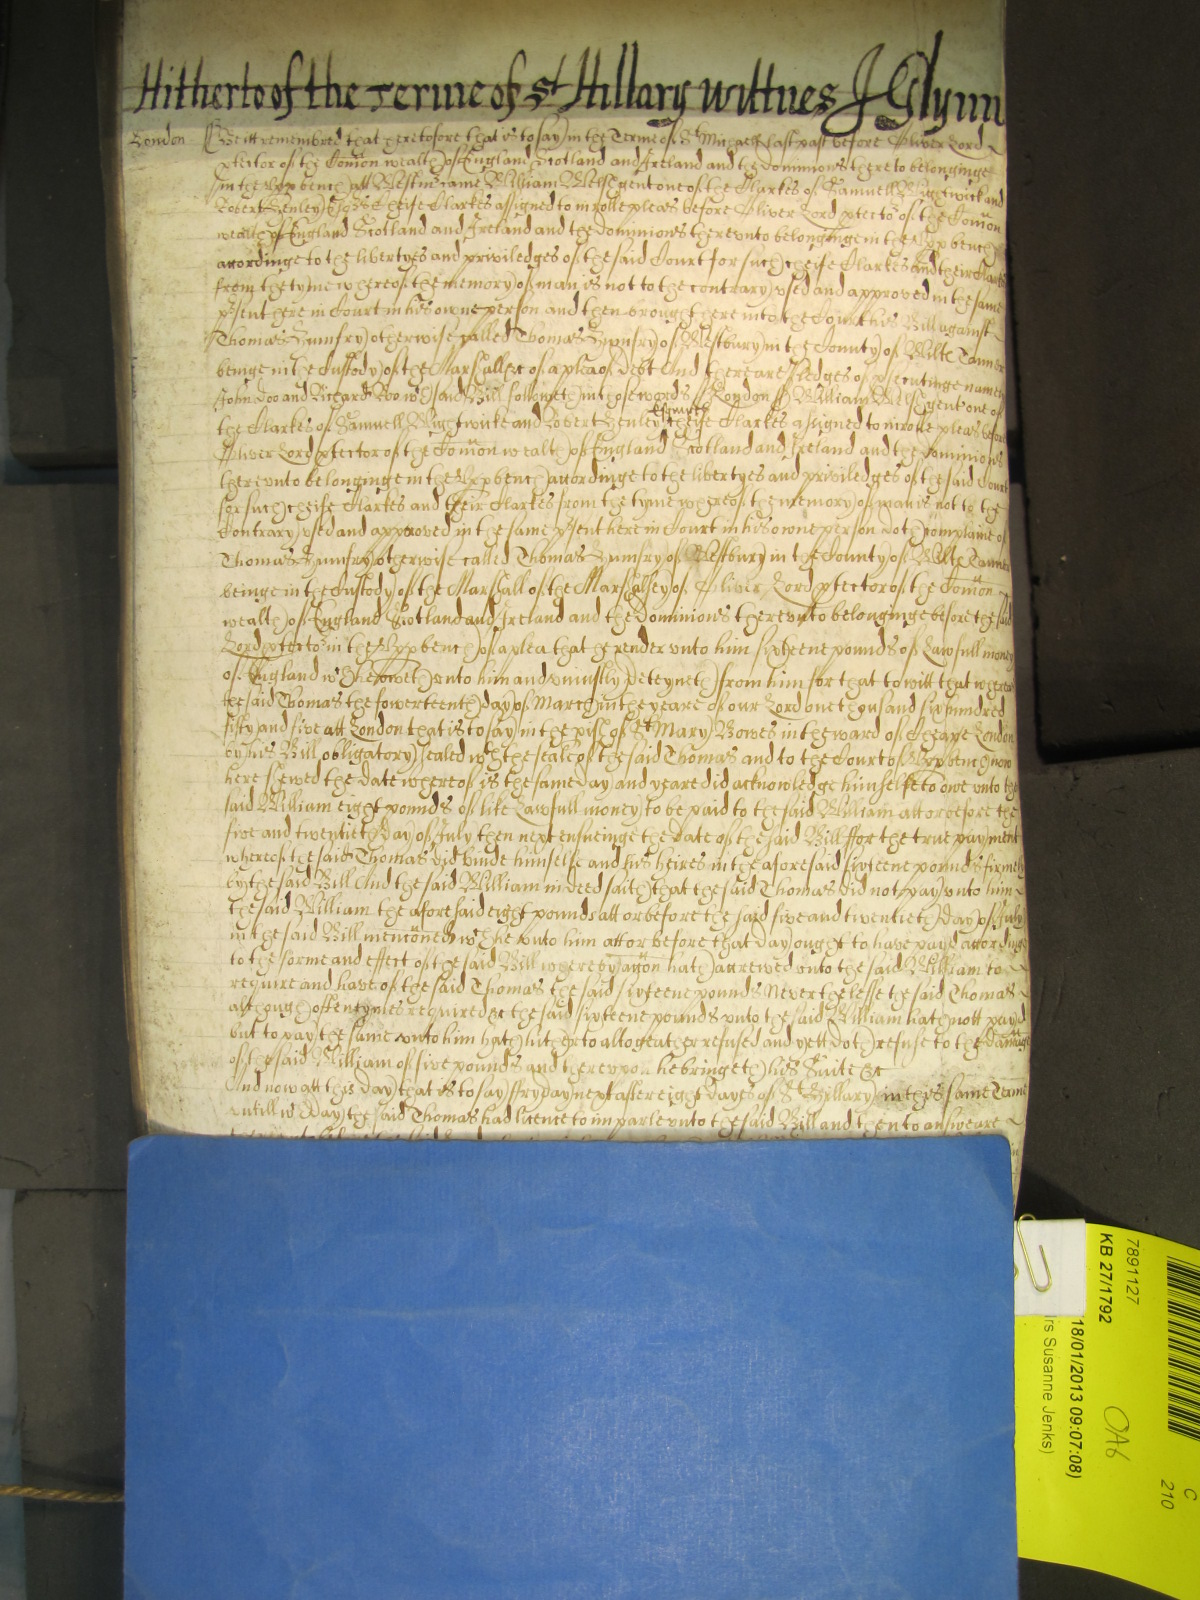 Hitherto of the Terme of St Hillary wittnes J Glynn
London Be itt remembred that heretofore that is to say in the Terme of St Michaell last past before Oliver Lord
ptector of the Comon wealth of England Scotland and Ireland and the dominions thereto belonginge
in the Vpp bench att Westmr came William Welse gent one of the Clarkes of Samuell Wightwick and
Robert Henley Cheife Clarkes assigned to inrolle pleas before Oliver Lord ptector of the Comon
wealth of England Scotland and Ireland and the dominions therevnto belonginge in the Vpp bench
accordinge to the libertyes and priviledges of the said Court for such cheife Clarkes and their Clarkes
from the tyme whereof the memory of man is not to the contrary vsed and approved in the same
psent here in Court in his owne person and then brought here into the Court his Bill against
Thomas Humfry otherwise called Thomas Humfry of Westbury in the County of Wilts Tanner
beinge in the Custody of the Marshall &c of a plea of debt And there are pledges of psecutinge namely
John Doo and Richard Roo wch said Bill followeth in these words London William Welse gent one of
the Clarkes of Samuell Wightwicke and Robert Henley Esquires cheife Clarkes assigned to inrolle pleas before
Oliver Lord ptector of the Comon wealth of England Scotland and Ireland and the dominions
therevnto belonginge in the Vpp bench accordinge to the libertyes and priviledges of the said Court
for such cheife Clarkes and their Clarkes from the tyme whereof the memory of man is not to the
Contrary vsed and approved in the same psent here in Court in his owne person doth complaine of
Thomas Humfry otherwise called Thomas Humfry of Westbury in the County of Wilts Tanner
beinge in the Custody of the Marshall of the Marshalsey of Oliver Lord ptector of the Comon
wealth of England Scotland and Ireland and the Dominions therevnto belonginge before the said
Lord ptector in the Vpp bench of a plea that he render vnto him sixteene pounds of Lawfull money
of England wch he oweth vnto him and vniustly deteyneth from him for that to witt that whereas
the said Thomas the fowerteenth day of March in the yeare of our Lord one thousand six hundred
fifty and five att London that is to say in the pish of St Mary Bowes in the ward of Cheape London
by his Bill obligatory sealed wth the seale of the said Thomas and to the Court of Vpp bench now
here shewed the date whereof is the same day and yeare did acknowledge himselfe to owe vnto the
said William eight pounds of like Lawfull money to be paid to the said William att or before the
five and twentieth day of July then next ensueinge the date of the said Bill ffor the true payment
whereof the said Thomas did binde himselfe and his heires in the aforesaid sixteene pounds firmely
by the said Bill And the said William in deed saith that the said Thomas did not pay vnto him
the said William the aforesaid eight pounds att or before the said five and twentieth day of July
in the said Bill menconed wch he vnto him att or before that day ought to have payd accordinge
to the forme and effect of the said Bill whereby accon hath accrewed vnto the said William to
require and have of the said Thomas the said sixteene pounds Neverthelesse the said Thomas
although oftentymes required &c the said sixteene pounds vnto the said William hath nott payd
but to pay the same vnto him hath hitherto altogeather refused and yett doth refuse to the damage
of the said William of five pounds and therevpon he bringeth his Suite &c
And now att this day that is to say ffryday next after eight dayes of St Hillary in this same Terme
vntill wch day the said Thomas had licence to imparle vnto the said Bill and then to answeare
7891127
KB 27/1792
18/01/2013 09:07:08)
rs Susanne Jenks)
OA6
C
210